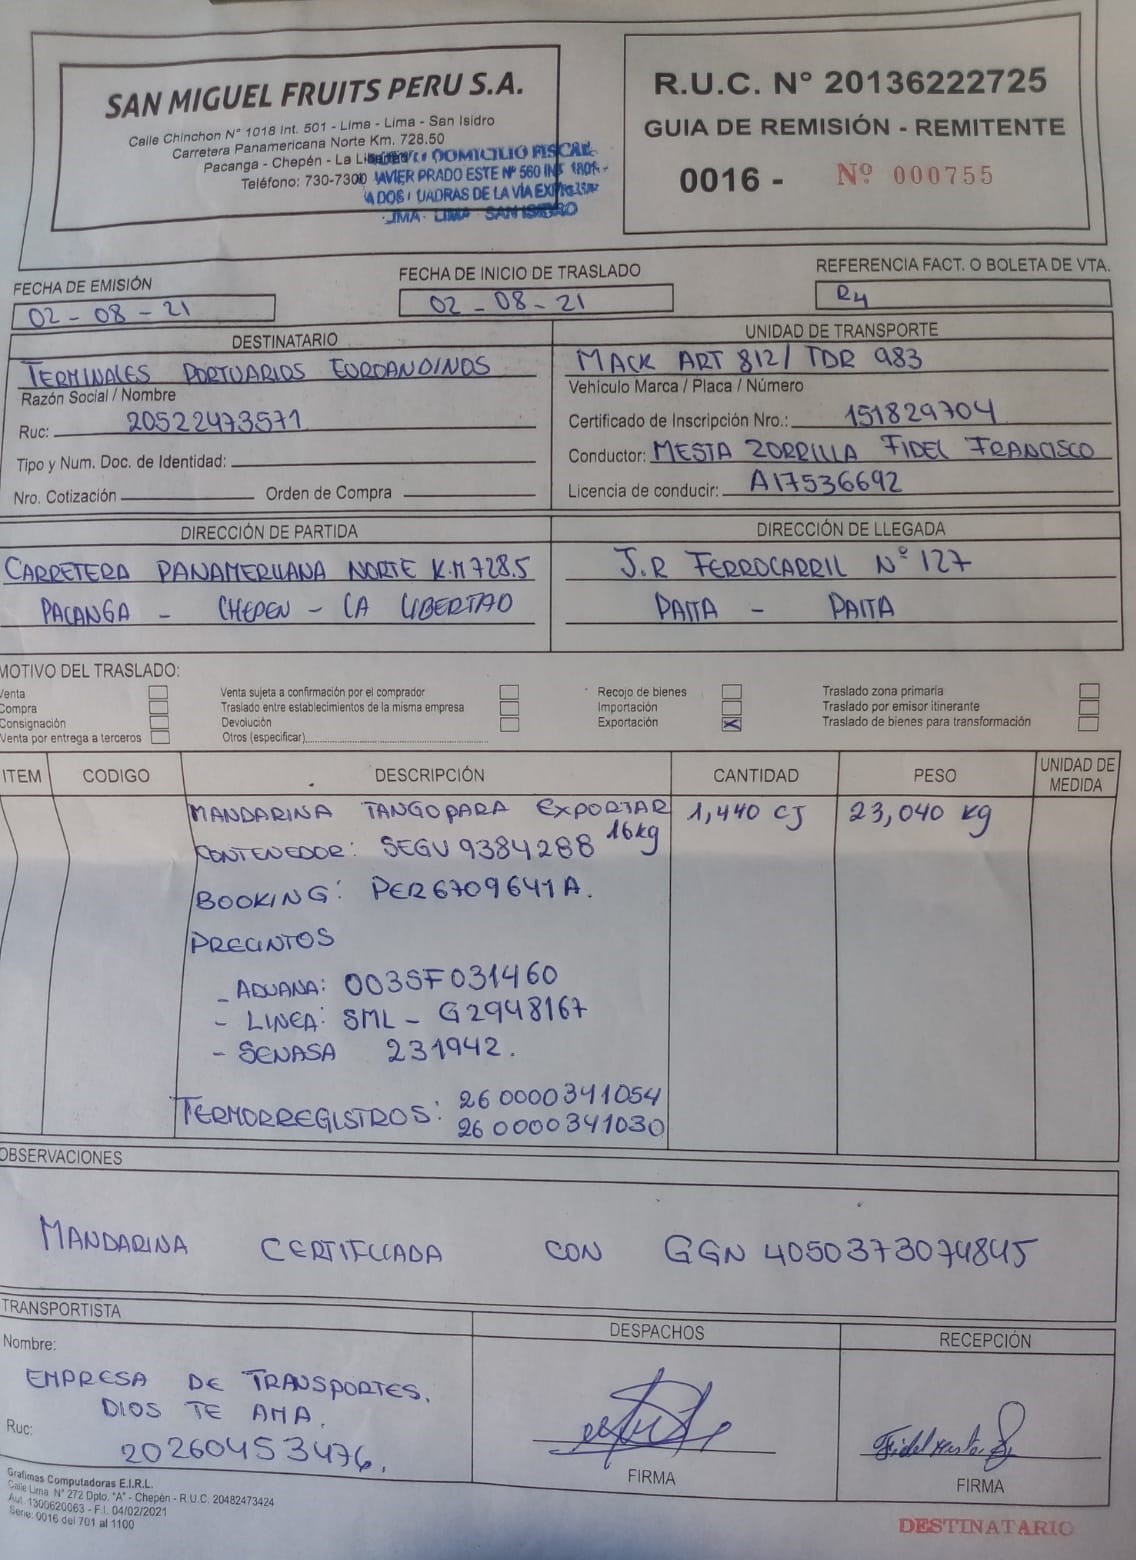 SAN MIGUEL FRUITS PERU S.A.
Calle Chinchon N° 1018 Int. 501 - Lima - Lima - San Isidro
Carretera Panamericana Norte Km. 728.50
Pacanga - Chepén - La
Teléfono: 730-7300
DOMICILIO FISCAL
JAVIER PRADO ESTE Nº 560 INT 1801
LIMA LIMA SAN ISIDRO
R.U.C. N° 20136222725
GUIA DE REMISIÓN - REMITENTE
0016 - Nº 000755
FECHA DE EMISIÓN
02-08-21
FECHA DE INICIO DE TRASLADO
02-08-21
REFERENCIA FACT. O BOLETA DE VTA.
R4
DESTINATARIO
TERMINALES PORTUARIOS EUROANDINOS
Razón Social / Nombre
Ruc: 20522473571
Tipo y Num. Doc. de Identidad:
Nro. Cotización Orden de Compra
UNIDAD DE TRANSPORTE
MACK ART 812/ TDR 983
Vehículo Marca / Placa / Número
Certificado de Inscripción Nro.: 151829704
Conductor: MESTA ZORRILLA FIDEL FRANCISCO
Licencia de conducir: A17536692
DIRECCIÓN DE PARTIDA
CARRETERA PANAMERICANA NORTE K.M 728.5
PACANGA - CHEPEN - LA LIBERTAD
DIRECCIÓN DE LLEGADA
J.R FERROCARRIL N° 127
PAITA - PAITA
MOTIVO DEL TRASLADO:
Venta
Compra
Consignación
Venta por entrega a terceros
Venta sujeta a confirmación por el comprador
Traslado entre establecimientos de la misma empresa
Devolución
Otros (especificar)
Recojo de bienes
Importación
Exportación X
Traslado zona primaria
Traslado por emisor itinerante
Traslado de bienes para transformación
ITEM CODIGO DESCRIPCIÓN CANTIDAD PESO UNIDAD DE MEDIDA
MANDARINA TANGO PARA EXPORTAR 1,440 CJ 23,040 kg
16kg
CONTENEDOR: SEGU 9384288
BOOKING: PER6709641A.
PRECINTOS
- ADUANA: 003SF031460
- LINEA: SML - G2948167
- SENASA 231942.
TERMORREGISTROS: 260000341054
260000341030
OBSERVACIONES
MANDARINA CERTIFICADA CON GGN 4050373074845
TRANSPORTISTA
Nombre:
EMPRESA DE TRANSPORTES.
DIOS TE AMA.
Ruc:
20260453476.
DESPACHOS
FIRMA
RECEPCIÓN
FIRMA
Grafimas Computadoras E.I.R.L.
Calle Lima N° 272 Dpto. "A" - Chepén - R.U.C. 20482473424
Aut. 1300620063 - F.I. 04/02/2021
Serie: 0016 del 701 al 1100
DESTINATARIO